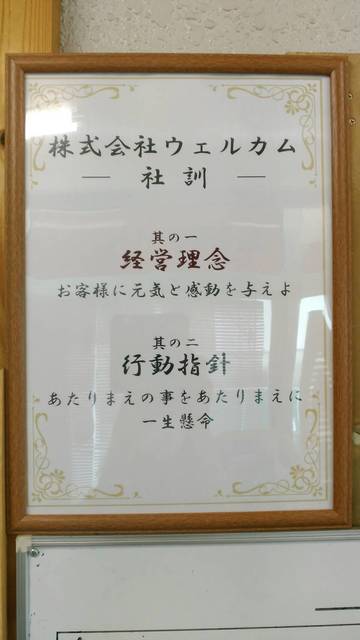 株式会社ウェルカム
― 社訓 ―
其の一
経営理念
お客様に元気と感動を与えよ
其の二
行動指針
あたりまえの事をあたりまえに
一生懸命